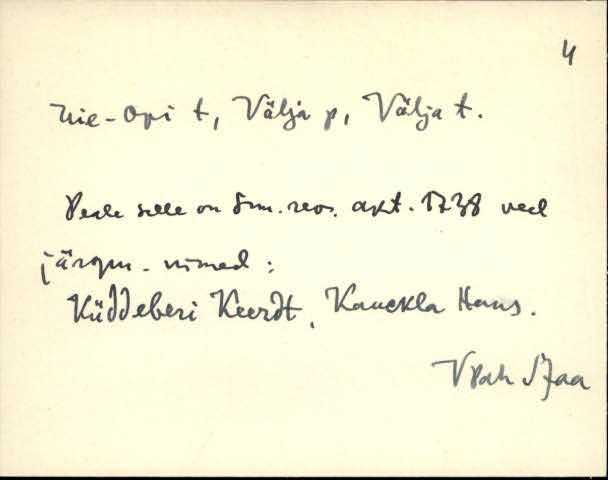 4
Uie-Opi t, Välja p, Välja t.
Peale selle on Erm. rev. akt. 1738 veel
järgm. nimed:
Küddeberi Keerdt, Kauckla Hans.
Jaa